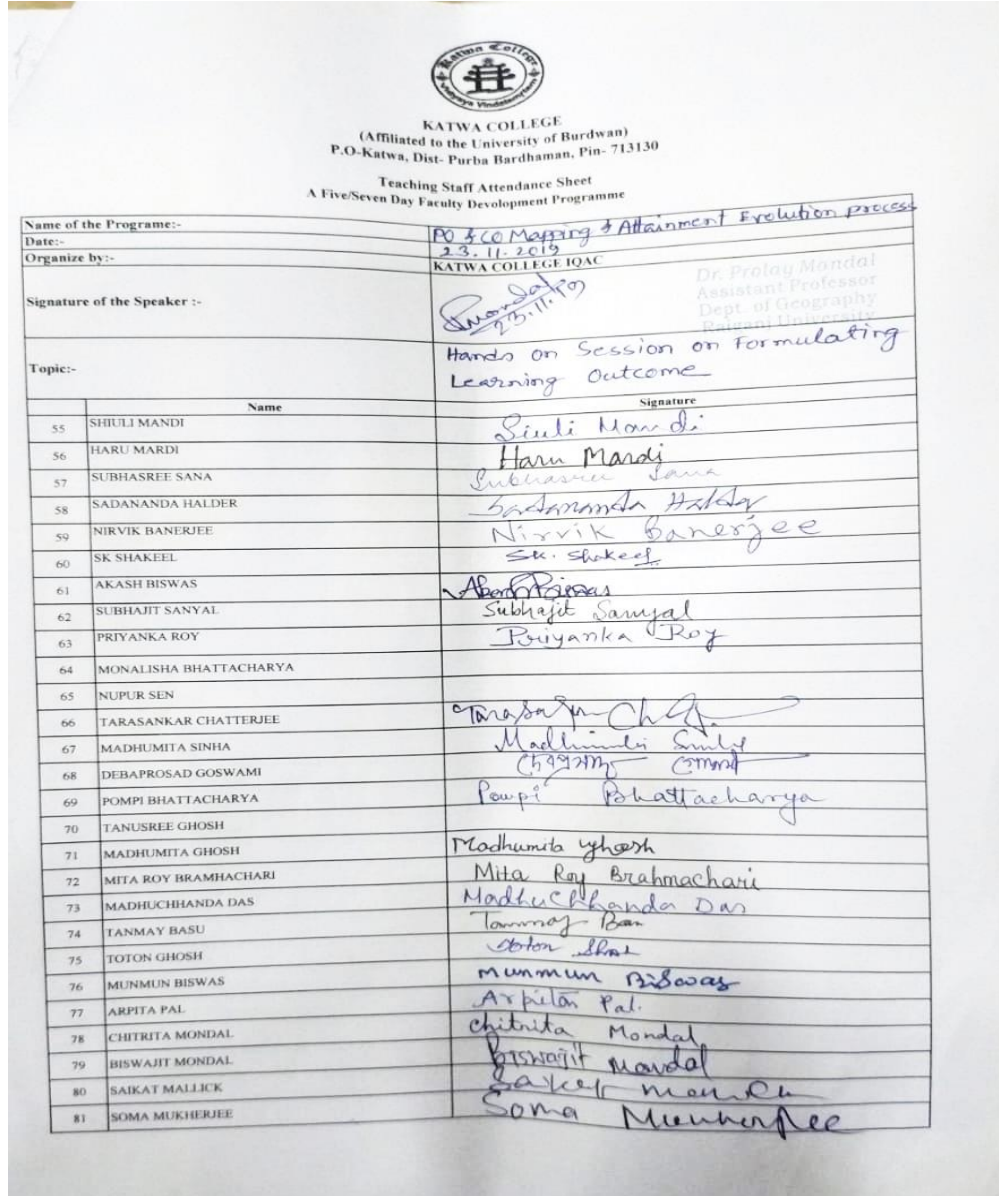 Katwa College
Vidyaya Vindatemrytam
KATWA COLLEGE
(Affiliated to the University of Burdwan)
P.O-Katwa, Dist- Purba Bardhaman, Pin- 713130
Teaching Staff Attendance Sheet
A Five/Seven Day Faculty Devolopment Programme
Name of the Programe:- PO & CO Mapping & Attainment Evolution process
Date:- 23.11.2019
Organize by:- KATWA COLLEGE IQAC
Signature of the Speaker :- PMondal 23.11.19
Dr. Prolay Mondal
Assistant Professor
Dept. of Geography
Raiganj University
Topic:- Hands on Session on Formulating
Learning Outcome
Name Signature
55 SHIULI MANDI Siuli Mandi
56 HARU MARDI Haru Mardi
57 SUBHASREE SANA Subhasree Sana
58 SADANANDA HALDER Sadananda Halder
59 NIRVIK BANERJEE Nirvik Banerjee
60 SK SHAKEEL SK. Shakeel
61 AKASH BISWAS Akash Biswas
62 SUBHAJIT SANYAL Subhajit Sanyal
63 PRIYANKA ROY Priyanka Roy
64 MONALISHA BHATTACHARYA
65 NUPUR SEN
66 TARASANKAR CHATTERJEE
67 MADHUMITA SINHA Madhumita Sinha
68 DEBAPROSAD GOSWAMI
69 POMPI BHATTACHARYA Pompi Bhattacharya
70 TANUSREE GHOSH
71 MADHUMITA GHOSH Madhumita Ghosh
72 MITA ROY BRAMHACHARI Mita Roy Brahmachari
73 MADHUCHHANDA DAS Madhuchhanda Das
74 TANMAY BASU Tanmay Basu
75 TOTON GHOSH Toton Ghosh
76 MUNMUN BISWAS Munmun Biswas
77 ARPITA PAL Arpita Pal.
78 CHITRITA MONDAL Chitrita Mondal
79 BISWAJIT MONDAL Biswajit Mondal
80 SAIKAT MALLICK
81 SOMA MUKHERJEE Soma Mukherjee